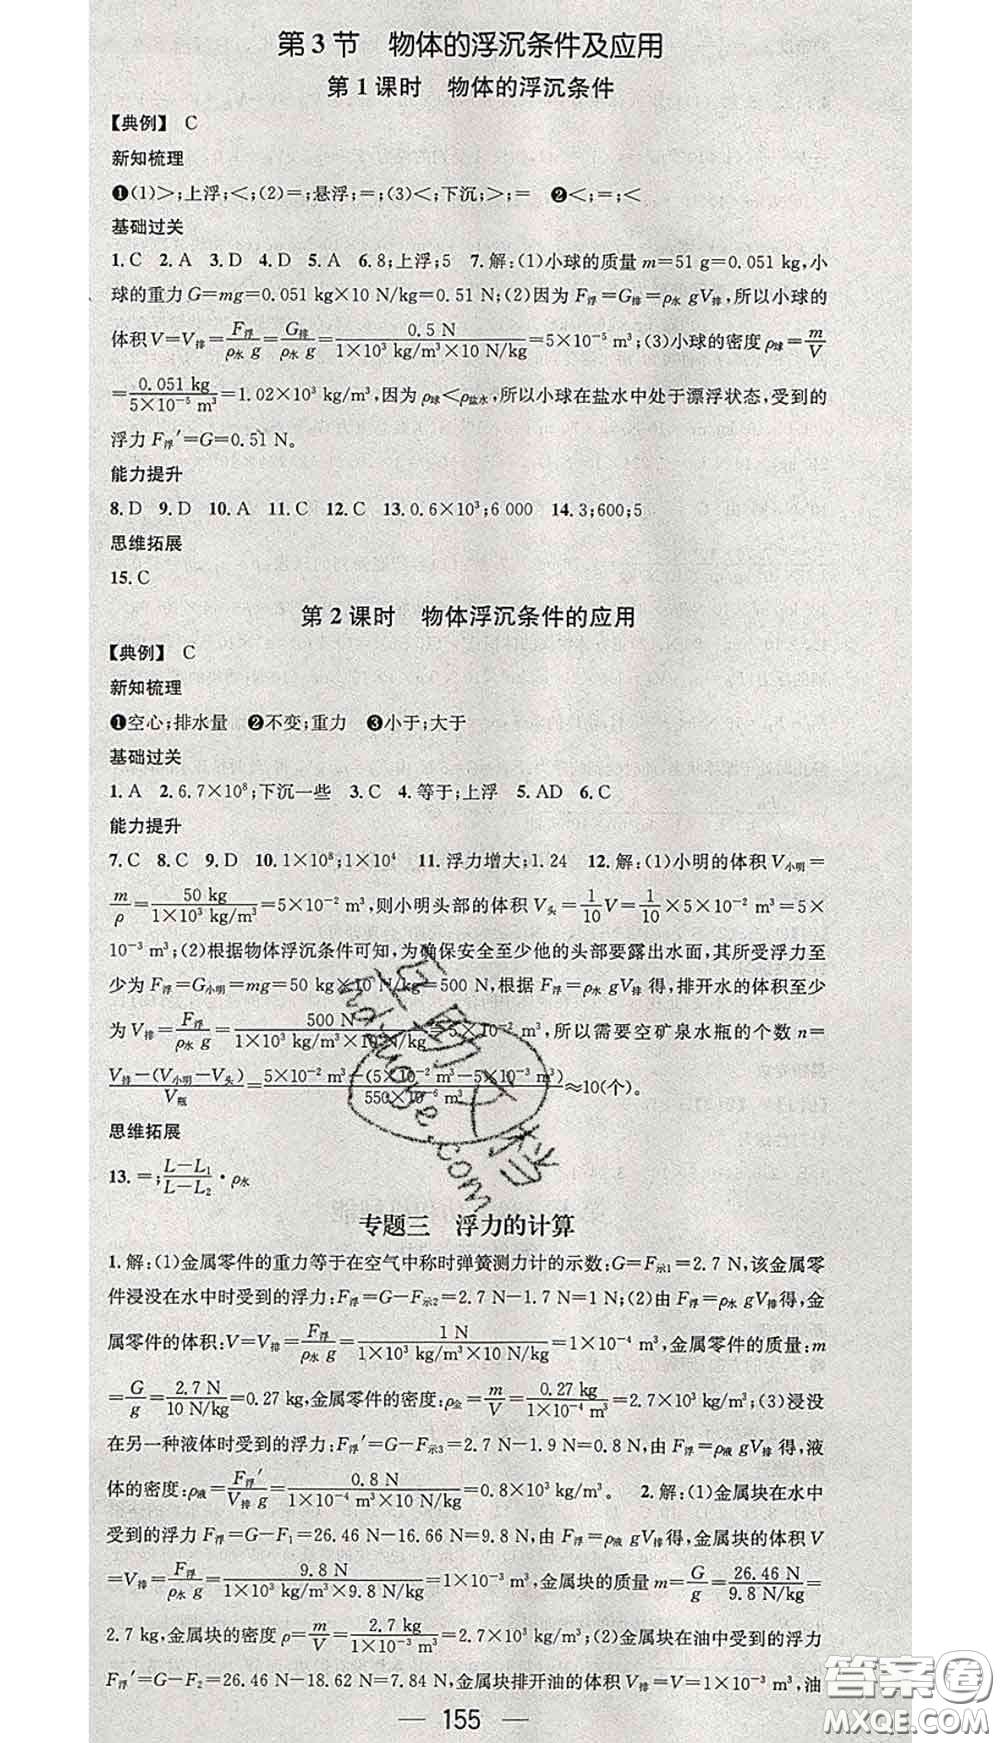 第3节　物体的浮沉条件及应用
第1课时　物体的浮沉条件
【典例】 C
新知梳理
❶(1)>;上浮;<;(2)=;悬浮;=;(3)<;下沉;>;=　❷<;=;<
基础过关
1. C　2. A　3. D　4. D　5. A　6. 8;上浮;5　7. 解:(1)小球的质量 m=51 g=0.051 kg,小
球的重力 G=mg=0.051 kg×10 N/kg=0.51 N;(2)因为 F浮=G排=ρ水 gV排,所以小球的
体积 V=V排=F浮/ρ水 g=G排/ρ水 g=0.5 N/1×10³ kg/m³×10 N/kg=5×10⁻⁵ m³;(3)小球的密度 ρ球=m/V
=0.051 kg/5×10⁻⁵ m³=1.02×10³ kg/m³,因为 ρ球<ρ盐水,所以小球在盐水中处于漂浮状态,受到的
浮力 F浮′=G=0.51 N。
能力提升
8. D　9. D　10. A　11. C　12. C　13. 0.6×10³;6 000　14. 3;600;5
思维拓展
15. C
第2课时　物体浮沉条件的应用
【典例】 C
新知梳理
❶空心;排水量　❷不变;重力　❸小于;大于
基础过关
1. A　2. 6.7×10⁸;下沉一些　3. C　4. 等于;上浮　5. AD　6. C
能力提升
7. C　8. C　9. D　10. 1×10⁸;1×10⁴　11. 浮力增大;1.24　12. 解:(1)小明的体积 V小明=
m/ρ=50 kg/1×10³ kg/m³=5×10⁻² m³,则小明头部的体积 V头=1/10V=1/10×5×10⁻² m³=5×
10⁻³ m³;(2)根据物体浮沉条件可知,为确保安全至少他的头部要露出水面,其所受浮力至
少为 F浮=G小明=mg=50 kg×10 N/kg=500 N,根据 F浮=ρ水 gV排 得,排开水的体积至少
为 V排=F浮/ρ水 g=500 N/1×10³ kg/m³×10 N/kg=5×10⁻² m³,所以需要空矿泉水瓶的个数 n=
V排−(V小明−V头)/V瓶=5×10⁻² m³−(5×10⁻² m³−5×10⁻³ m³)/550×10⁻⁶ m³≈10(个)。
思维拓展
13. =;L−L₁/L−L₂·ρ水
专题三　浮力的计算
1. 解:(1)金属零件的重力等于在空气中称时弹簧测力计的示数:G=F示1=2.7 N,该金属零
件浸没在水中时受到的浮力:F浮=G−F示2=2.7 N−1.7 N=1 N;(2)由 F浮=ρ水 gV排得,金
属零件的体积:V=V排=F浮/ρ水 g=1 N/1×10³ kg/m³×10 N/kg=1×10⁻⁴ m³,金属零件的质量:m
=G/g=2.7 N/10 N/kg=0.27 kg,金属零件的密度:ρ金=m/V=0.27 kg/1×10⁻⁴ m³=2.7×10³ kg/m³;(3)浸没
在另一种液体时受到的浮力:F浮′=G−F示3=2.7 N−1.9 N=0.8 N,由 F浮=ρ液 gV排 得,液
体的密度:ρ液=F浮′/V排 g=0.8 N/1×10⁻⁴ m³×10 N/kg=0.8×10³ kg/m³。　2. 解:(1)金属块在水中
受到的浮力 F浮=G−F₁=26.46 N−16.66 N=9.8 N,由 F浮=ρ液 gV排得,金属块的体积 V
=V排=F浮/ρ水 g=9.8 N/1×10³ kg/m³×9.8 N/kg=1×10⁻³ m³,金属块的质量 m=G/g=26.46 N/9.8 N/kg=
2.7 kg,金属块的密度 ρ=m/V=2.7 kg/1×10⁻³ m³=2.7×10³ kg/m³;(2)金属块在油中受到的浮力
F浮′=G−F₂=26.46 N−18.62 N=7.84 N,金属块排开油的体积 V排=V=1×10⁻³ m³,油
— 155 —
答案圈
MXQE.COM